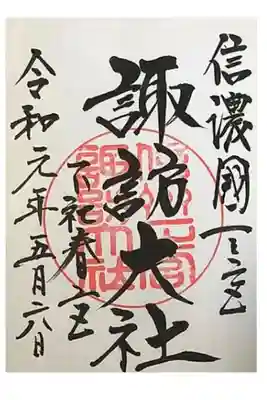 信濃國一之宮
諏訪大社
下社春宮
令和元年五月六日